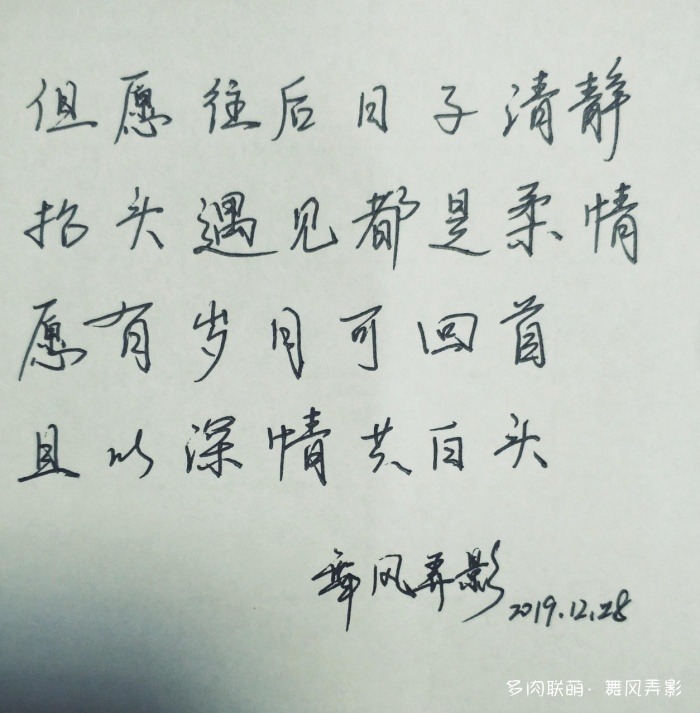 但愿往后日子清静
抬头遇见都是柔情
愿有岁月可回首
且以深情共白头
舞风弄影 2019.12.28
多肉联萌·舞风弄影